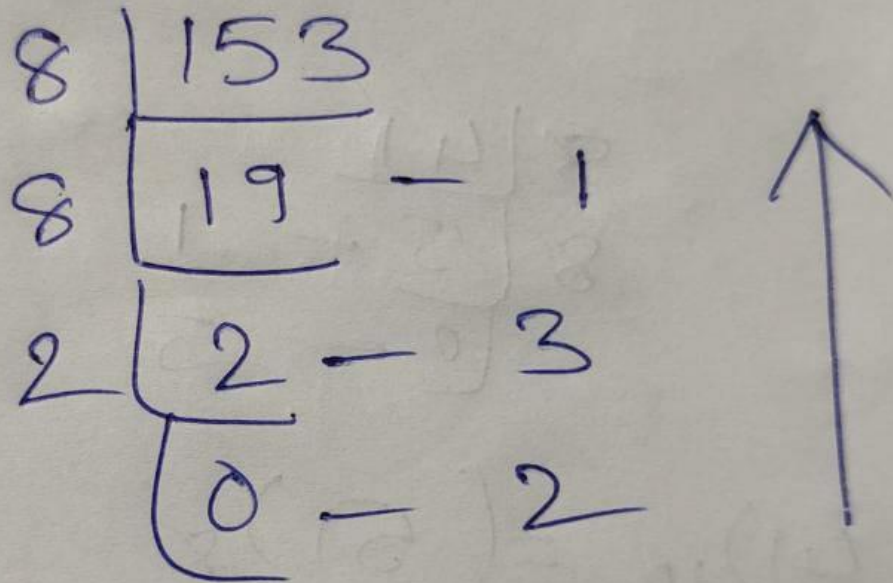 8 153
8 19 - 1
2 2 - 3
0 - 2